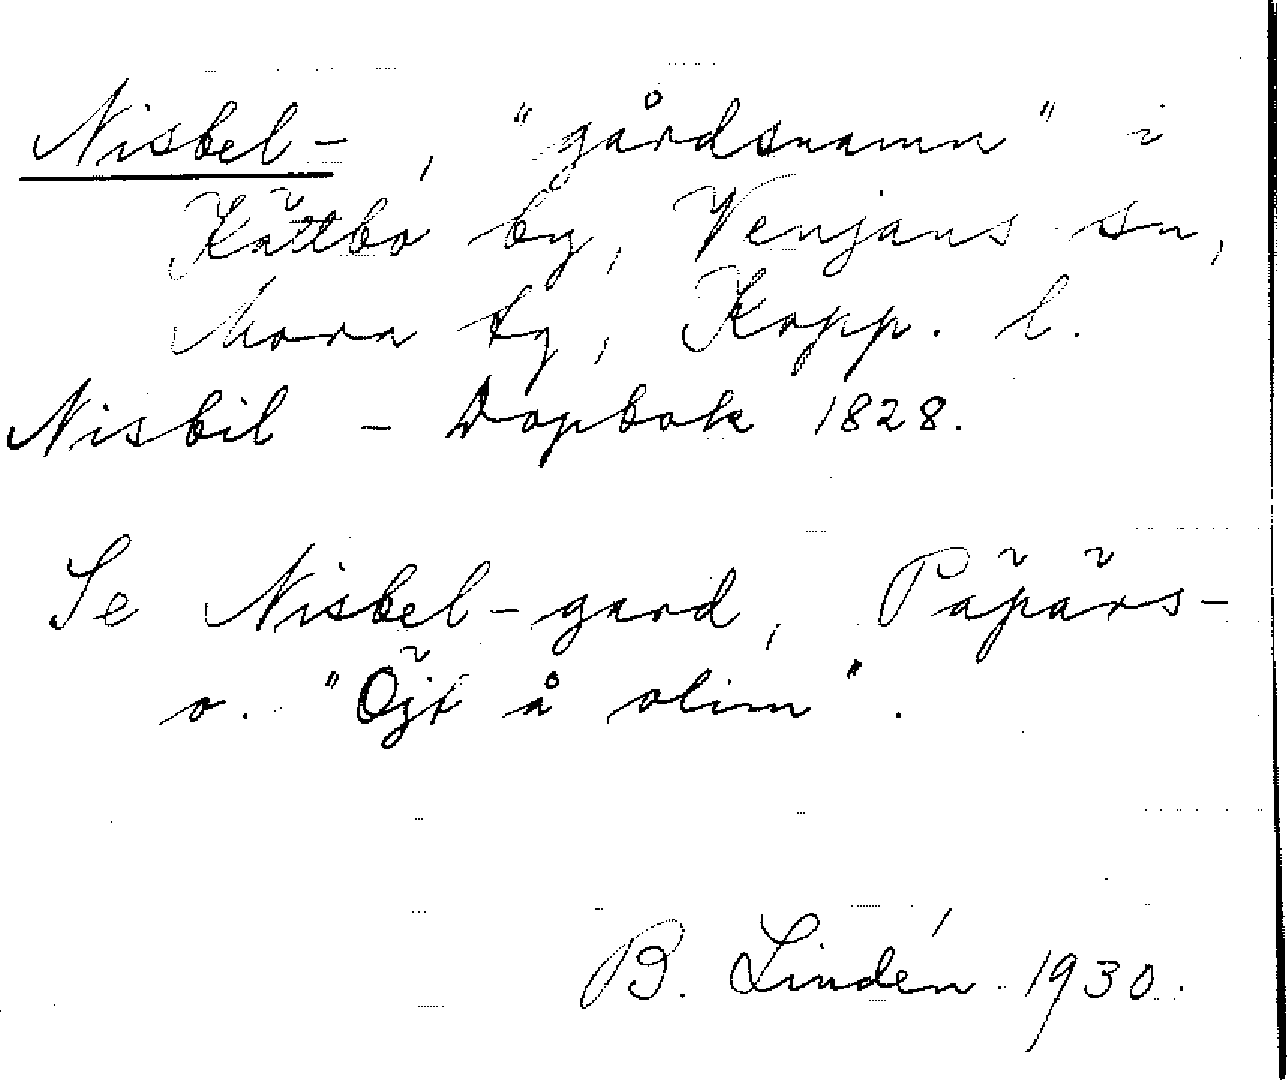 Nisbel-, "gårdsnamn" i
Kättbo by, Venjans sn,
Mora tg, Kopp. l.
Nisbil - Dopbok 1828.
Se Nisbel-gard, Päpärs-
o. "Öjt å olim".
B. Lindén 1930.